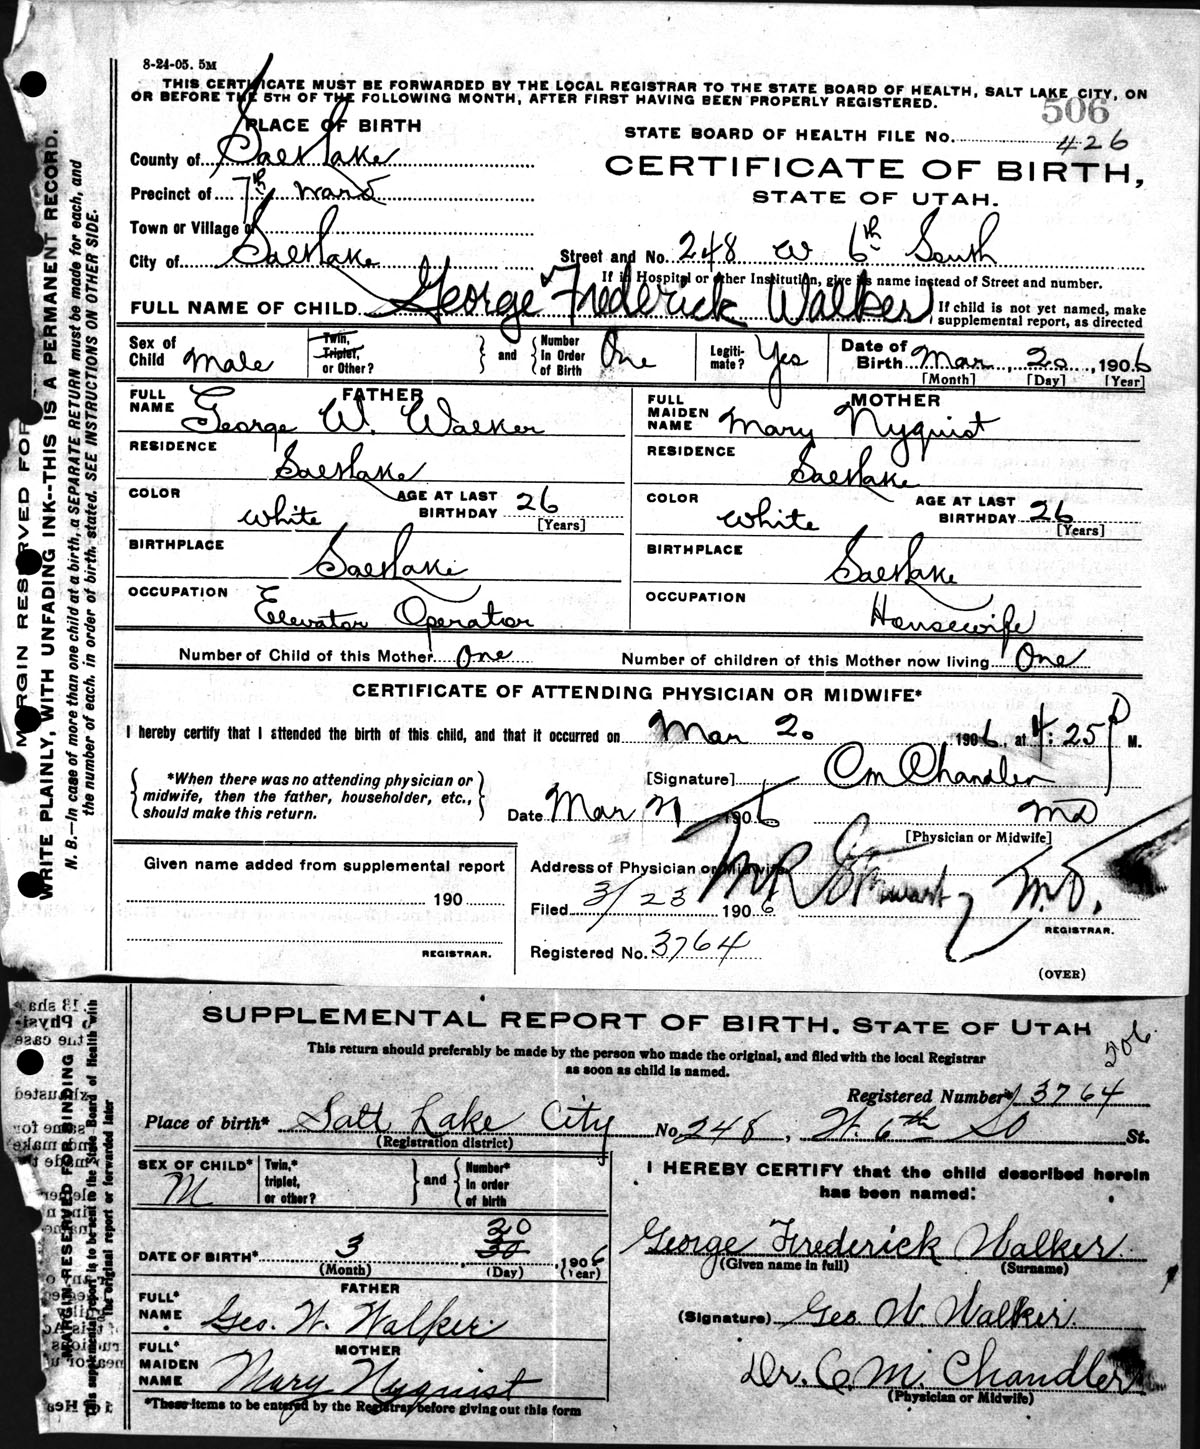 8-24-05. 5M
THIS CERTIFICATE MUST BE FORWARDED BY THE LOCAL REGISTRAR TO THE STATE BOARD OF HEALTH, SALT LAKE CITY, ON
OR BEFORE THE 5TH OF THE FOLLOWING MONTH, AFTER FIRST HAVING BEEN PROPERLY REGISTERED.
506
PLACE OF BIRTH
STATE BOARD OF HEALTH FILE No. 426
County of Salt Lake
CERTIFICATE OF BIRTH,
Precinct of 7th ward
STATE OF UTAH.
Town or Village of
City of Salt Lake
Street and No. 248 W 6th South
If in Hospital or other Institution, give its name instead of Street and number.
FULL NAME OF CHILD George Frederick Walker
If child is not yet named, make
supplemental report, as directed
Sex of Child Male
Twin, Triplet, or Other? and Number In Order of Birth One
Legiti-mate? Yes
Date of Birth Mar 20, 1906
[Month] [Day] [Year]
FATHER
FULL NAME George W. Walker
RESIDENCE Salt Lake
COLOR white AGE AT LAST BIRTHDAY 26
[Years]
BIRTHPLACE Salt Lake
OCCUPATION Elevator Operator
MOTHER
FULL MAIDEN NAME Mary Nyquist
RESIDENCE Salt Lake
COLOR white AGE AT LAST BIRTHDAY 26
[Years]
BIRTHPLACE Salt Lake
OCCUPATION Housewife
Number of Child of this Mother One Number of children of this Mother now living One
CERTIFICATE OF ATTENDING PHYSICIAN OR MIDWIFE*
I hereby certify that I attended the birth of this child, and that it occurred on Mar 20 1906, at 4:25 P M.
*When there was no attending physician or
midwife, then the father, householder, etc.,
should make this return.
[Signature] C M Chandler
Date Mar 21 1906 MD
[Physician or Midwife]
Given name added from supplemental report
190
REGISTRAR.
Address of Physician or Midwife
Filed 3/23 1906 M.D.
REGISTRAR.
Registered No. 3764
(OVER)
MARGIN RESERVED FOR
WRITE PLAINLY, WITH UNFADING INK--THIS IS A PERMANENT RECORD.
N. B.—In case of more than one child at a birth, a SEPARATE RETURN must be made for each, and
the number of each, in order of birth, stated. SEE INSTRUCTIONS ON OTHER SIDE.
SUPPLEMENTAL REPORT OF BIRTH, STATE OF UTAH
506
This return should preferably be made by the person who made the original, and filed with the local Registrar
as soon as child is named.
Registered Number* 3764
Place of birth* Salt Lake City No. 248, W. 6th So St.
(Registration district)
SEX OF CHILD* M
Twin,* triplet, or other? and Number* in order of birth
DATE OF BIRTH* 3 20 30, 1906
(Month) (Day) (Year)
FATHER
FULL* NAME Geo. W. Walker
MOTHER
FULL* MAIDEN NAME Mary Nyquist
*These items to be entered by the Registrar before giving out this form
I HEREBY CERTIFY that the child described herein
has been named:
George Frederick Walker
(Given name in full) (Surname)
(Signature) Geo W Walker
Dr. C. M. Chandler
(Physician or Midwife)
MARGIN RESERVED FOR BINDING
This supplemental report is to be sent to the State Board of Health with
the original report or forwarded later